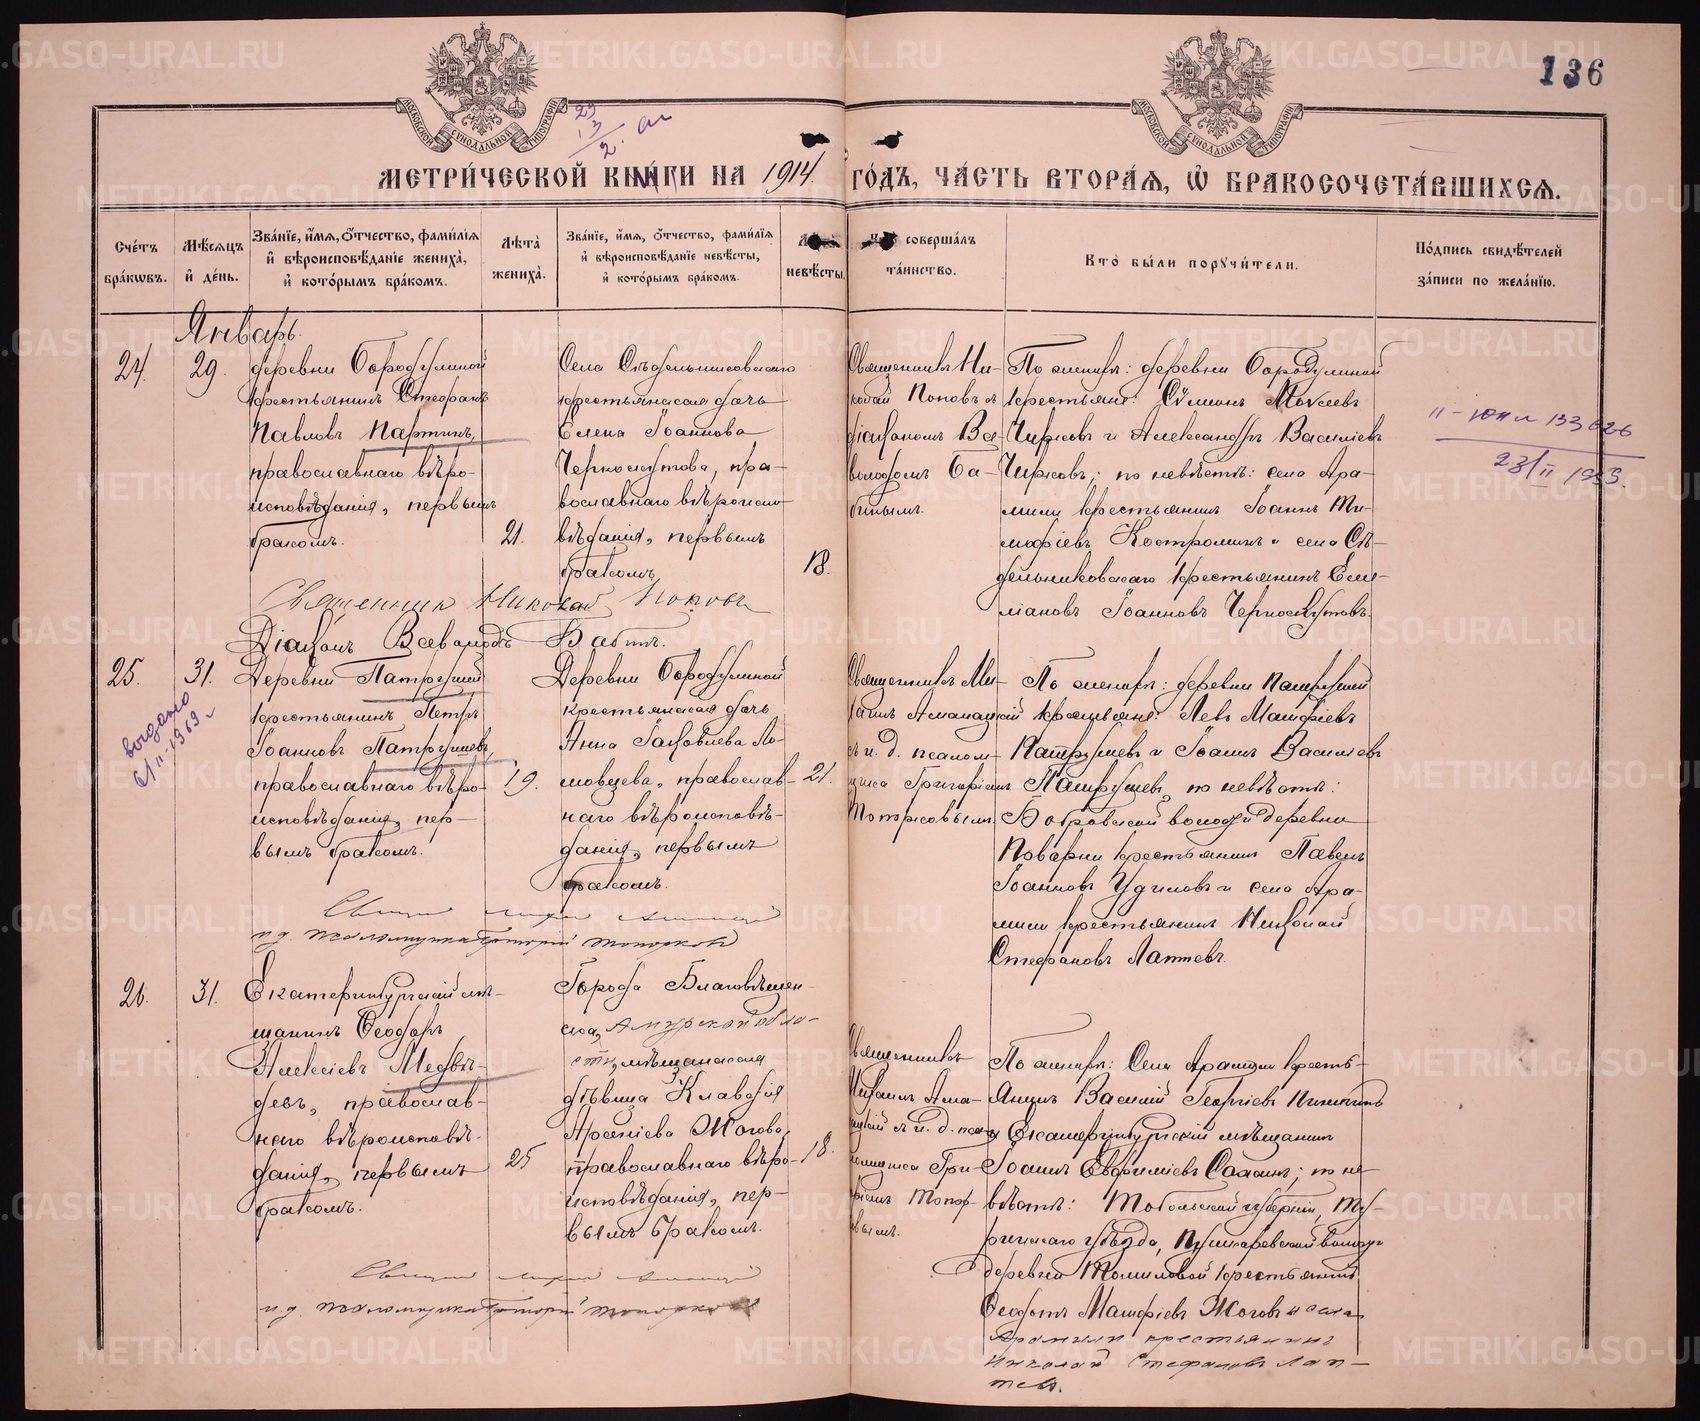 136
МЕТРИЧЕСКОЙ КНИГИ НА 1914 ГОДЪ, ЧАСТЬ ВТОРАЯ, Ѡ БРАКОСОЧЕТАВШИХСЯ.
Счетъ браковъ.
Мѣсяцъ и день.
Званіе, имя, отчество, фамилія и вѣроисповѣданіе жениха, и которымъ бракомъ.
Лѣта жениха.
Званіе, имя, отчество, фамилія и вѣроисповѣданіе невѣсты, и которымъ бракомъ.
невѣсты.
совершалъ таинство.
Кто были поручители.
Подпись свидѣтелей записи по желанію.
Январь.
24.
29.
деревни Бородулиной
крестьянинъ Стефанъ
Павловъ Партинъ,
православнаго вѣро-
исповѣданія, первымъ
бракомъ.
21.
Села
крестьянская дочь
Елена Іоаннова
Черноскутова, пра-
вославнаго вѣроиспо-
вѣданія, первымъ
бракомъ
18.
Священникъ Ни-
колай Поповъ съ
діакономъ Все-
володомъ Ба-
бинымъ.
По женихѣ: деревни Бородулиной
крестьяне: Симеонъ Моисеевъ
Чирковъ и Александръ Василіевъ
Чирковъ; по невѣстѣ: села Ара-
мили крестьянинъ Іоаннъ Ти-
моѳіевъ Костроминъ и села Сѣ-
дельниковскаго крестьянинъ Еме-
ліановъ Іоанновъ Черноскутовъ.
Священник Николай Попов
Діаконъ Всеволодъ Бабинъ.
25.
31.
Деревни Патрушей
крестьянинъ Петръ
Іоанновъ Патрушевъ,
православнаго вѣро-
исповѣданія, пер-
вымъ бракомъ.
19.
Деревни Бородулиной
крестьянская дочь
Анна Іаковлева Ло-
мовцева, православ-
наго вѣроисповѣ-
данія, первымъ
бракомъ.
21.
Священникъ Ми-
хаилъ Аманацкій
съ и. д. псалом-
щика Григоріемъ
Топорковымъ.
По женихѣ: деревни Патрушей
крестьяне: Левъ Матѳіевъ
Патрушевъ и Іоаннъ Василіевъ
Патрушевъ, по невѣстѣ:
Бобровской волости деревни
Поварни крестьянинъ Павелъ
Іоанновъ Удиловъ и села Ара-
мили крестьянинъ Николай
Стефановъ Лаптевъ.
и д. псаломщика Григорій Топорковъ
26.
31.
Екатеринбургскій мѣ-
щанинъ Ѳеодоръ
Алексіевъ Медвѣ-
девъ, православ-
наго вѣроисповѣ-
данія, первымъ
бракомъ.
25
Города Благовѣщен-
ска, Амурской обла-
сти, мѣщанская
дѣвица Клавдія
Арсеніева Жогова,
православнаго вѣро-
исповѣданія, пер-
вымъ бракомъ.
18.
Священникъ
Михаилъ Ама-
нацкій съ и. д. псал-
омщика Гри-
горіемъ Топор-
ковымъ.
По женихѣ: Села Арамили кресть-
янинъ Василій Георгіевъ Никитинъ
и Екатеринбургскій мѣщанинъ
Іоаннъ Евѳиміевъ; по не-
вѣстѣ: Тобольской губерніи, Ту-
ринскаго уѣзда, волости
деревни Томиловой крестьянинъ
Ѳеодотъ Матѳіевъ Жоговъ и села
Арамили крестьянинъ
Николай Стефановъ Лап-
тевъ.
и д. псаломщика Григорій Топорковъ